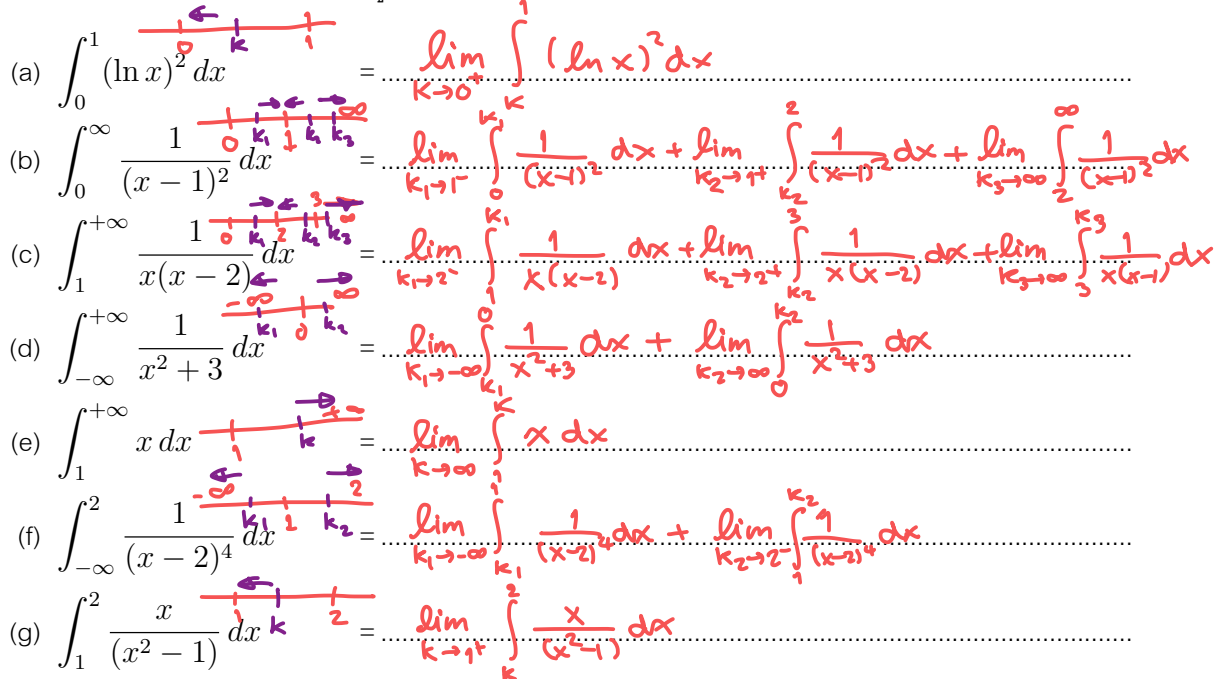 (a) ∫_0^1 (ln x)^2 dx = lim_{k→0^+} ∫_k^1 (ln x)^2 dx
0 k 1
(b) ∫_0^∞ 1/(x − 1)^2 dx = lim_{k_1→1^-} ∫_0^{k_1} 1/(x-1)^2 dx + lim_{k_2→1^+} ∫_{k_2}^2 1/(x-1)^2 dx + lim_{k_3→∞} ∫_2^∞ 1/(x-1)^2 dx
0 k_1 1 k_2 k_3 ∞
(c) ∫_1^{+∞} 1/(x(x − 2)) dx = lim_{k_1→2^-} ∫_1^{k_1} 1/(x(x-2)) dx + lim_{k_2→2^+} ∫_{k_2}^3 1/(x(x-2)) dx + lim_{k_3→∞} ∫_3^{k_3} 1/(x(x-1)) dx
0 k_1 2 k_2 3 k_3 ∞
(d) ∫_{−∞}^{+∞} 1/(x^2 + 3) dx = lim_{k_1→-∞} ∫_{k_1}^0 1/(x^2+3) dx + lim_{k_2→∞} ∫_0^{k_2} 1/(x^2+3) dx
-∞ k_1 0 k_2 ∞
(e) ∫_1^{+∞} x dx = lim_{k→∞} ∫_1^k x dx
1 k +∞
(f) ∫_{−∞}^2 1/(x − 2)^4 dx = lim_{k_1→-∞} ∫_{k_1}^1 1/(x-2)^4 dx + lim_{k_2→2^-} ∫_1^{k_2} 1/(x-2)^4 dx
-∞ k_1 1 k_2 2
(g) ∫_1^2 x/(x^2 − 1) dx = lim_{k→1^+} ∫_k^2 x/(x^2-1) dx
1 k 2